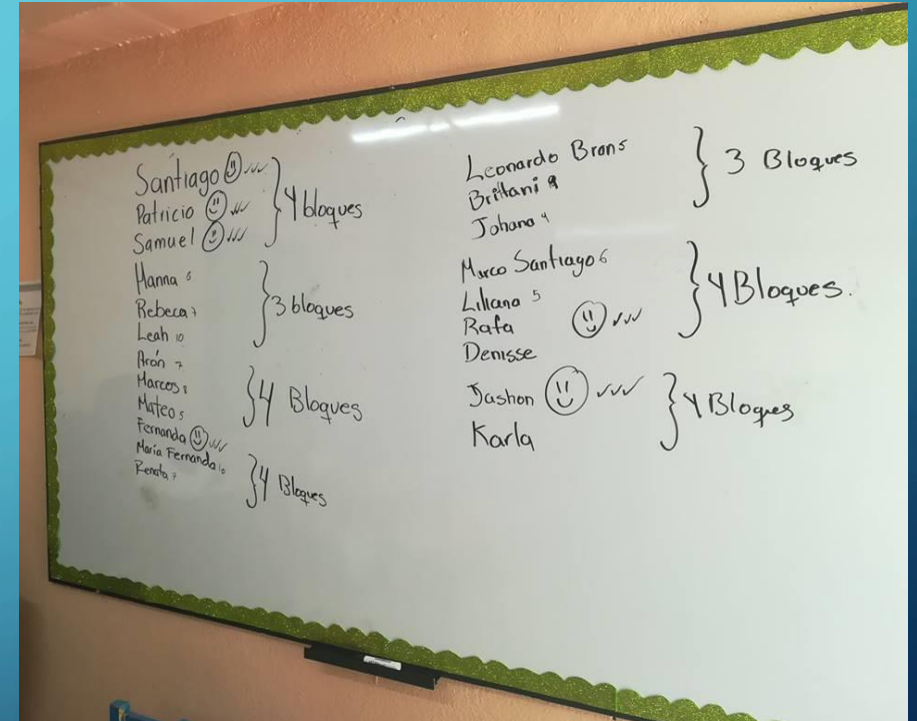 Santiago
Patricio
Samuel
4 bloques
Hanna 6
Rebeca 7
Leah 10
3 bloques
Arón 7
Marcos 8
Mateo 5
4 Bloques
Fernanda
María Fernanda 10
Renata 7
4 Bloques
Leonardo Brans
Brittani 9
Johana 4
3 Bloques
Marco Santiago 6
Liliana 5
Rafa
Denisse
4 Bloques.
Jashon
Karla
4 Bloques